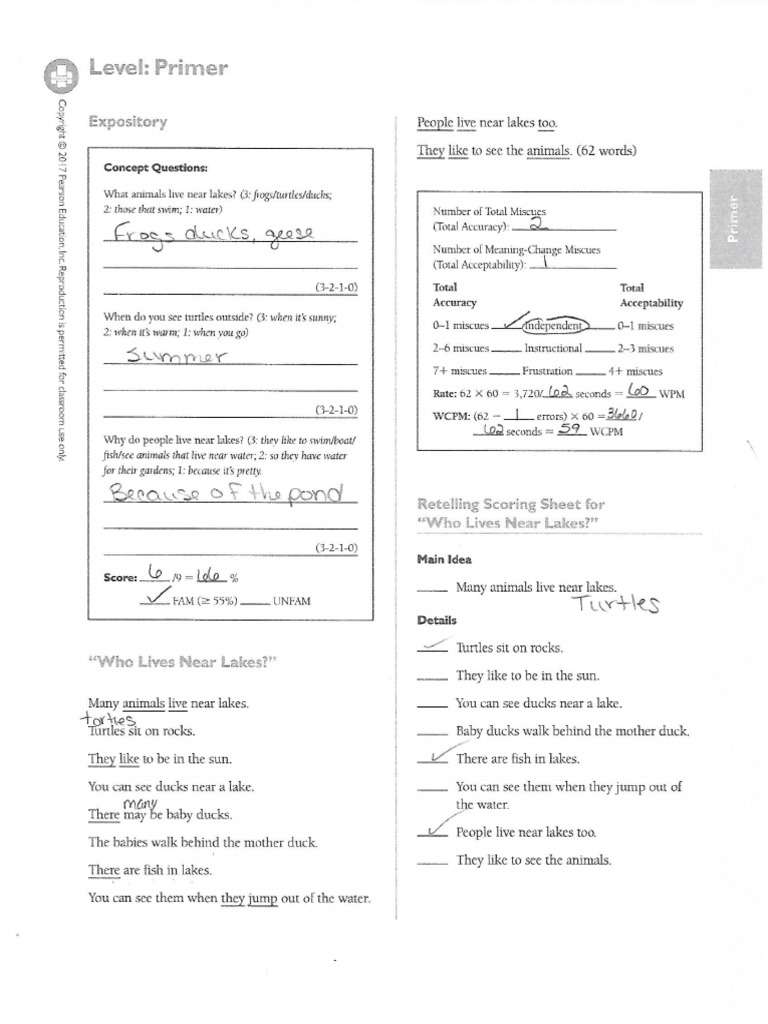 Level: Primer
Copyright © 2017 Pearson Education, Inc. Reproduction is permitted for classroom use only.
Expository
Concept Questions:
What animals live near lakes? (3: frogs/turtles/ducks;
2: those that swim; 1: water)
Frogs ducks, geese
(3-2-1-0)
When do you see turtles outside? (3: when it's sunny;
2: when it's warm; 1: when you go)
Summer
(3-2-1-0)
Why do people live near lakes? (3: they like to swim/boat/
fish/see animals that live near water; 2: so they have water
for their gardens; 1: because it's pretty.
Because of the pond
(3-2-1-0)
Score: 6 /9 = 66 %
✓ FAM (≥ 55%) ____ UNFAM
"Who Lives Near Lakes?"
Many animals live near lakes.
torties
Turtles sit on rocks.
They like to be in the sun.
You can see ducks near a lake.
many
There may be baby ducks.
The babies walk behind the mother duck.
There are fish in lakes.
You can see them when they jump out of the water.
People live near lakes too.
They like to see the animals. (62 words)
Primer
Number of Total Miscues
(Total Accuracy): 2
Number of Meaning-Change Miscues
(Total Acceptability): 1
Total Total
Accuracy Acceptability
0–1 miscues ✓ Independent ____ 0–1 miscues
2–6 miscues ____ Instructional ____ 2–3 miscues
7+ miscues ____ Frustration ____ 4+ miscues
Rate: 62 × 60 = 3,720/ 62 seconds = 60 WPM
WCPM: (62 − 1 errors) × 60 = 3660/
62 seconds = 59 WCPM
Retelling Scoring Sheet for
"Who Lives Near Lakes?"
Main Idea
____ Many animals live near lakes.
Turtles
Details
✓ Turtles sit on rocks.
____ They like to be in the sun.
____ You can see ducks near a lake.
____ Baby ducks walk behind the mother duck.
✓ There are fish in lakes.
____ You can see them when they jump out of
the water.
✓ People live near lakes too.
____ They like to see the animals.